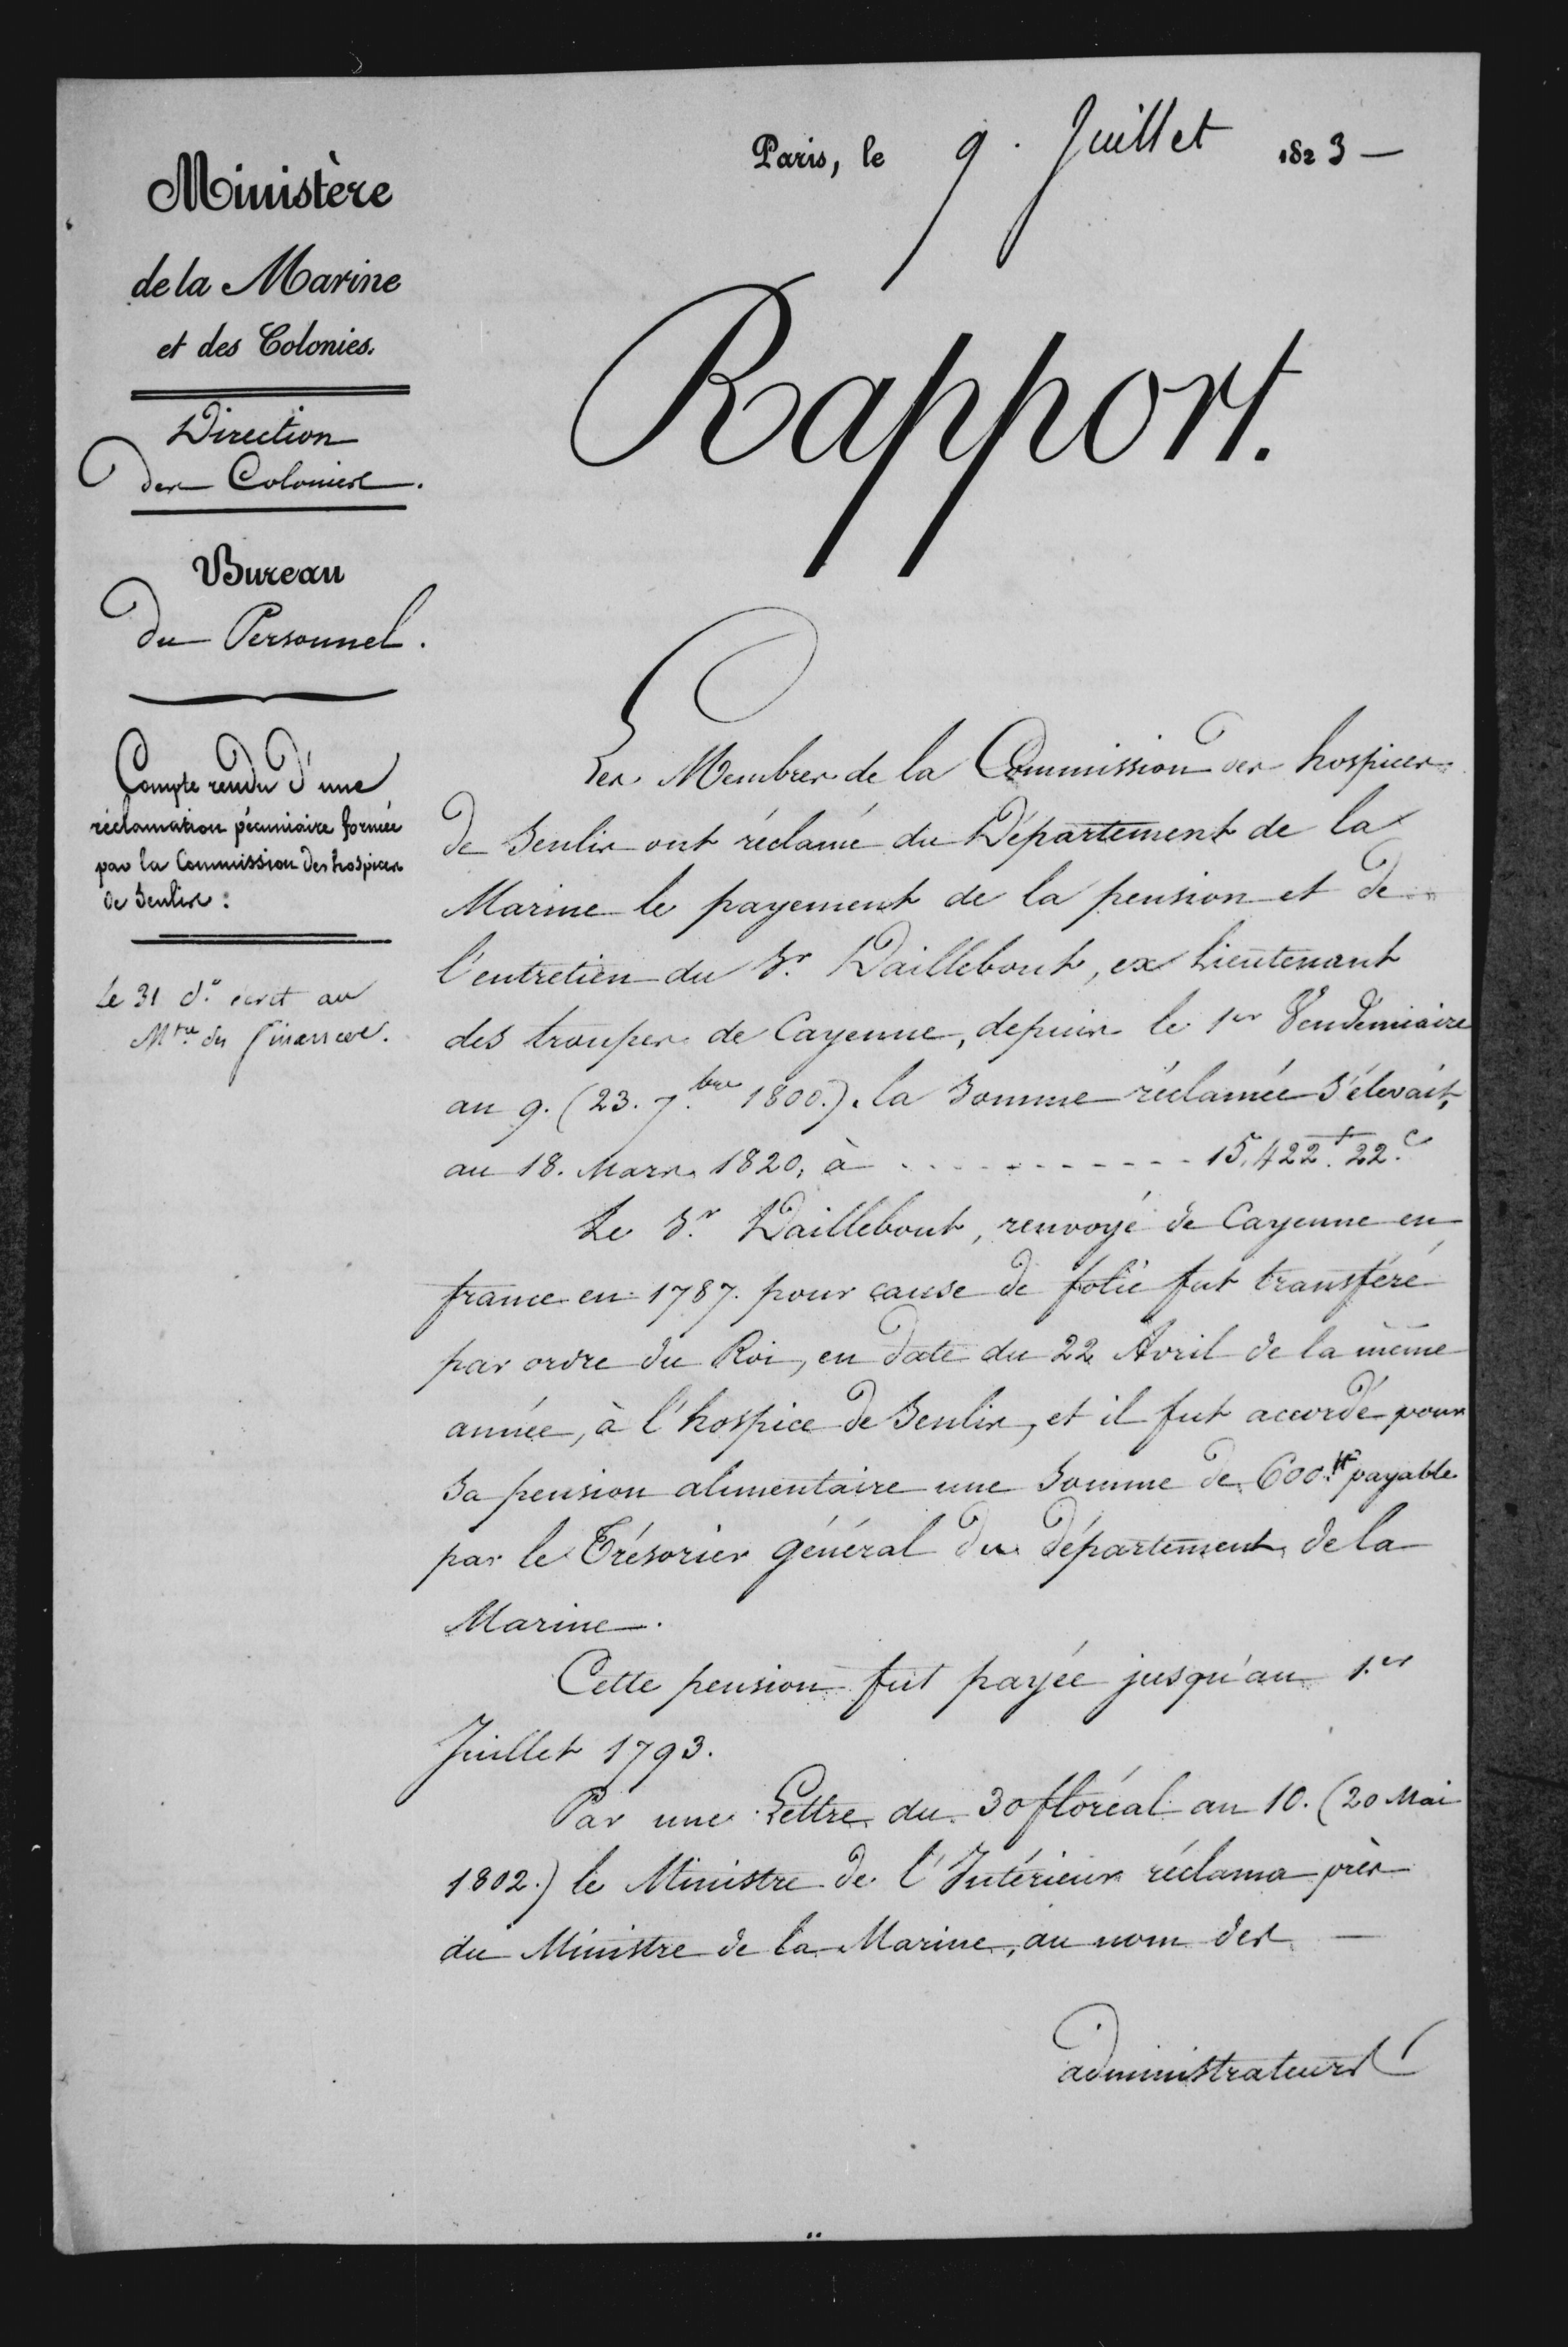 Ministère
de la Marine
et des Colonies.
Direction
des Colonies.
Bureau
du Personnel.
Compte rendu d'une
réclamation pécuniaire formée
par la Commission des hospices
de Senlis :
Le 31 do. écrit au
Mtre. des finances.
Paris, le 9. Juillet 1823 —
Rapport.
Les Membres de la Commission des hospices
de Senlis ont réclamé du Département de la
Marine le payement de la pension et de
l'entretien du Sr. Daillebout, ex Lieutenant
des troupes de Cayenne, depuis le 1er Vendémiaire
an 9. (23. 7.bre 1800.). la somme réclamée s'élevait,
au 18. Mars 1820, à . . . . - - - - - - 15,422.f 22.c
Le Sr. Daillebout, renvoyé de Cayenne en
france en 1787. pour cause de folie fut transféré
par ordre du Roi, en date du 22 Avril de la même
année, à l'hospice de Senlis, et il fut accordé pour
sa pension alimentaire une somme de 600.# payable
par le Trésorier général du département de la
Marine.
Cette pension fut payée jusqu'au 1.er
Juillet 1793.
Par une Lettre du 30 floréal an 10. (20 Mai
1802.) le Ministre de l'Intérieur réclama près
du Ministre de la Marine, au nom des —
administrateurs